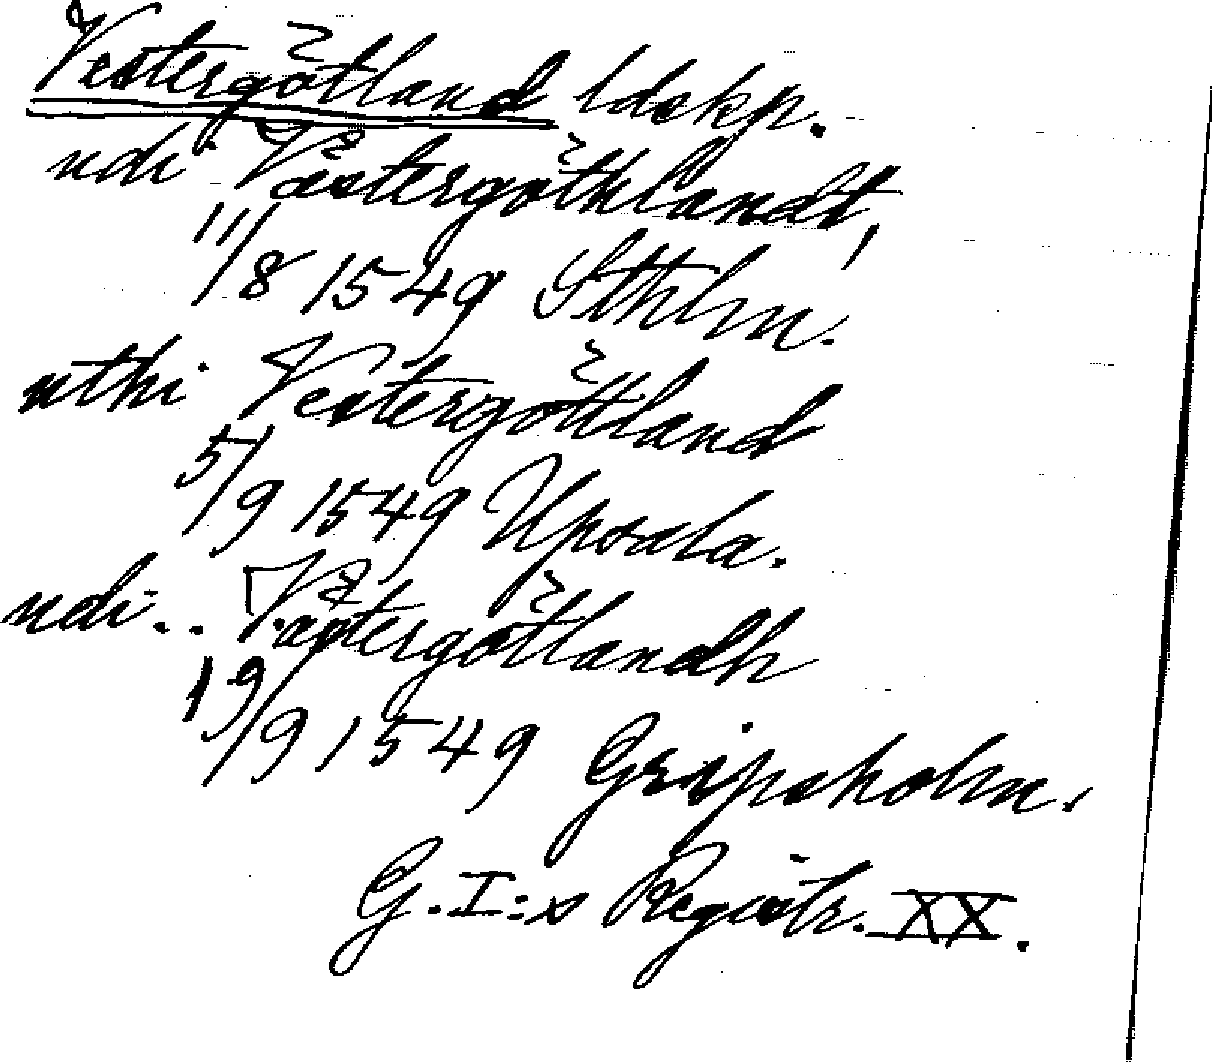 Vestergötland ldskp.
udi Västergöthlandt,
11/8 1549 Sthlm.
uthi Vestergöttland
5/9 1549 Upsala.
udi.. Västergötlandh
19/9 1549 Gripsholm.
G.I:s Registr. XX.